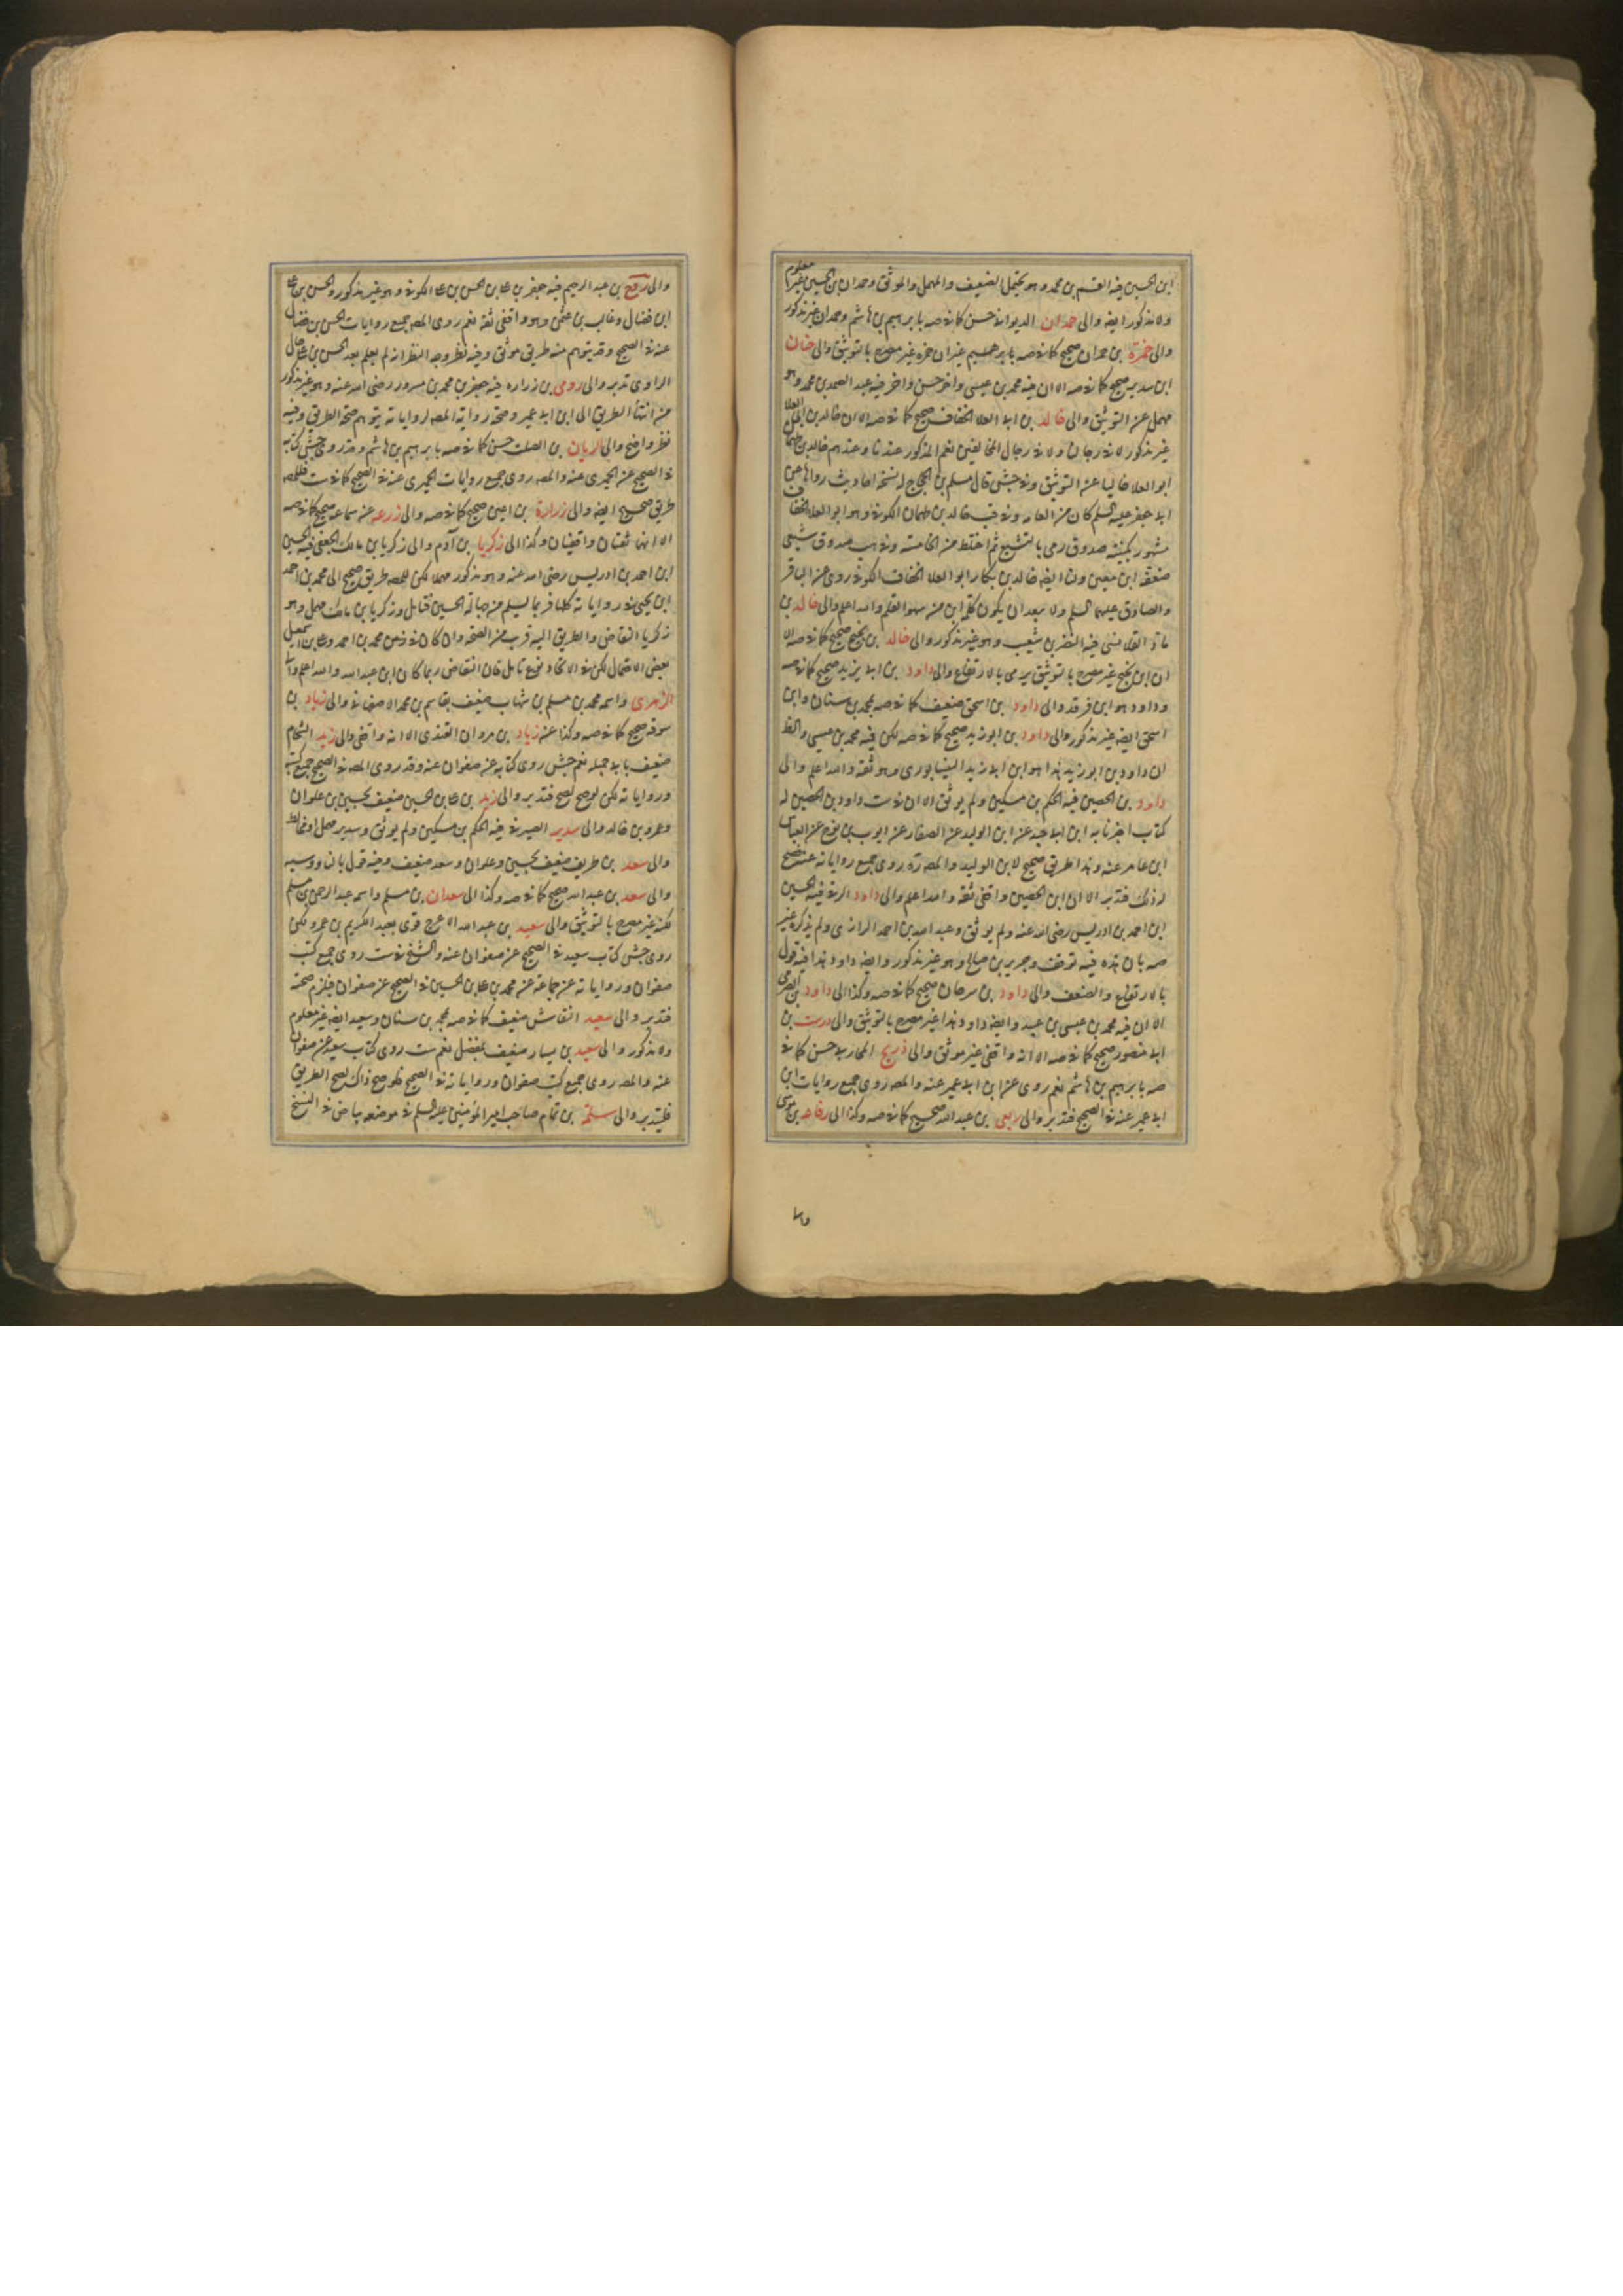 ابن الحسين فيه القسم بن محمد وهو يحتمل الضعيف والمهمل والموثق وحمدان بن الحسين غير معلوم
ولا مذكور ايضا والى حمدان الديوانى حسن كما فى صه بابرهيم بن هاشم وحمدان غير مذكور
والى حمزة بن حمران صحيح كما فى صه بابرهيم غير ان حمزه غير مصرح بالتوثيق والى حنان
ابن سدير صحيح كما فى صه الا ان فيه محمد بن عيسى واخر حسن واخر فيه عبد الصمد بن محمد وهو
مهمل عن التوثيق والى خالد بن ابى العلا الخفاف صحيح كما فى صه الا ان خالد بن ابى العلا
غير مذكور لا فى رجالنا ولا فى رجال المخالفين نعم المذكور عندنا وعندهم خالد بن طهمان
ابو العلا خاليا عن التوثيق وفى جش قال مسلم بن الحجاج له نسخة احاديث رواها عن
ابى جعفر عليه السلم كان من العامه وفى قب خالد بن طهمان الكوفى وهو ابو العلا الخفاف
مشهور بكنيته صدوق رمى بالتشيع ثم اختلط من الخامسة وفى هب صدوق شيعى
ضعفه ابن معين ولنا ايضا خالد بن بكار ابو العلا الخفاف الكوفى روى عن الباقر
والصادق عليهما السلم ولا يبعد ان يكون كلمة ابن من سهو القلم والله اعلم والى خالد بن
ماد القلانسى فيه النضر بن شعيب وهو غير مذكور والى خالد بن نجيح صحيح كما فى صه الا
ان ابن نجيح غير مصرح بالتوثيق يرمى بالارتفاع والى داود بن ابى يزيد صحيح كما فى صه
وداود هو ابن فرقد والى داود بن اسحق ضعيف كما فى صه بمحمد بن سنان وابن
اسحق ايضا غير مذكور والى داود بن ابو زيد صحيح كما فى صه لكن فيه محمد بن عيسى والظ
ان داود بن ابو زيد هذا هو ابن ابى زيد النيشابورى وهو ثقة والله اعلم والى
داود بن الحصين فيه الحكم بن مسكين ولم يوثق الا ان فى ست داود بن الحصين له
كتاب اخبرنا به ابن ابى جيد عن ابن الوليد عن الصفار عن ايوب بن نوح عن العباس
ابن عامر عنه وهذا طريق صحيح لابن الوليد والمصره روى جميع رواياته عنه فيصح
لذلك فتدبر الا ان ابن الحصين واقفى ثقة والله اعلم والى داود الرقى فيه الحسين
ابن احمد بن ادريس رضى الله عنه ولم يوثق وعبد الله بن احمد الرازى ولم يذكره غير
صه بان هذه فيه توقف وجرير بن صالح وهو غير مذكور وايضا داود هذا فيه قول
بالارتفاع والضعف والى داود بن سرحان صحيح كما فى صه وكذا الى داود بن الصرمى
الا ان فيه محمد بن عيسى بن عبيد وايضا داود هذا غير مصرح بالتوثيق والى درست بن
ابى منصور صحيح كما فى صه الا انه واقفى غير موثق والى ذريح المحاربى حسن كما فى
صه بابرهيم بن هاشم نعم روى عن ابن ابى عمير عنه والمصه روى جميع روايات ابن
ابى عمير عنه فى الصحيح فتدبر والى ربعى بن عبد الله صحيح كما فى صه وكذا الى رفاعه بن موسى
والى روح بن عبد الرحيم فيه جعفر بن على بن الحسن بن على الكوفى وهو غير مذكور والحسن بن على
ابن فضال وغالب بن عثمن وهو واقفى ثقة نعم روى المصه جميع روايات الحسن بن فضال
عنه فى الصحيح وقد يتوهم منه طريق موثق وفيه نظر وجه النظر انه لم يعلم بعد الحسن بن على حال
الراوى تدبر والى رومى بن زراره فيه جعفر بن محمد بن مسرور رضى الله عنه وهو غير مذكور
من انتهاء الطريق الى ابن ابى عمير وصحة رواية المصه لرواياته يتوهم صحة الطريق وفيه
نظر واضح والى الريان بن الصلت حسن كما فى صه بابرهيم بن هاشم وقد روى جش كتابه
فى الصحيح عن الحميرى عنه والمصه روى جميع روايات الحميرى عنه فى الصحيح كما فى ست فللمصه
طريق صحيح ايضا والى زرارة بن اعين صحيح كما فى صه والى زرعه عن سماعه صحيح كما فى صه
الا انهما ثقتان واقفيان وكذا الى زكريا بن آدم والى زكريا بن مالك الجعفى فيه الحسين
ابن احمد بن ادريس رضى الله عنه وهو مذكور مهملا لكن للمصه طريق صحيح الى محمد بن احمد
ابن يحيى فى رواياته كلها فربما يسلم من جهالة الحسين فتامل وزكريا بن مالك مهمل وهو
زكريا النقاض والطريق اليه قريب من الصحه وان كان فى محمد بن احمد وعلى بن اسمعيل
بعض الاحتمال لكن فى الاتحاد نوع تامل فان النقاض ربما كان ابن عبد الله والله اعلم والى
الزهرى واسمه محمد بن مسلم بن شهاب ضعيف بقاسم بن محمد الاصفهانى والى زياد بن
سوقه صحيح كما فى صه وكذا عنه زياد بن مروان القندى الا انه واقفى والى زيد الشحام
ضعيف بابى جميله نعم جش روى كتابه عن صفوان عنه وقد روى المصه فى الصحيح جميع كتبه
ورواياته لكن لو صح لصح فتدبر والى زيد بن على بن الحسين ضعيف بحسين بن علوان
وعمرو بن خالد والى سدير الصيرفى فيه الحكم بن مسكين ولم يوثق وسدير مهمل او مخالط
والى سعد بن طريف ضعيف بحسين وعلوان وسعد ضعيف وفيه قول بالناووسيه
والى سعد بن عبد الله صحيح كما فى صه وكذا الى سعدان بن مسلم واسمه عبد الرحمن بن مسلم
لكنه غير مصرح بالتوثيق والى سعيد بن عبد الله الاعرج قوى بعبد الكريم بن عمرو لكن
روى جش كتاب سعيد فى الصحيح عن صفوان عنه والشيخ فى ست روى جميع كتب
صفوان ورواياته عن جماعة عن محمد بن على بن الحسين فى الصحيح عن صفوان فيلزم صحته
فتدبر والى سعيد النقاش ضعيف كما فى صه بمحمد بن سنان وسعيد ايضا غير معلوم
ولا مذكور والى سعيد بن يسار ضعيف بمفضل نعم ست روى كتاب سعيد عن صفوان
عنه والمصه روى جميع كتب صفوان ورواياته فى الصحيح فلو صح ذاك لصح الطريق
فليتدبر والى سلمة بن تمام صاحب امير المؤمنين عليه السلم فى موضعه بياض فى النسخ